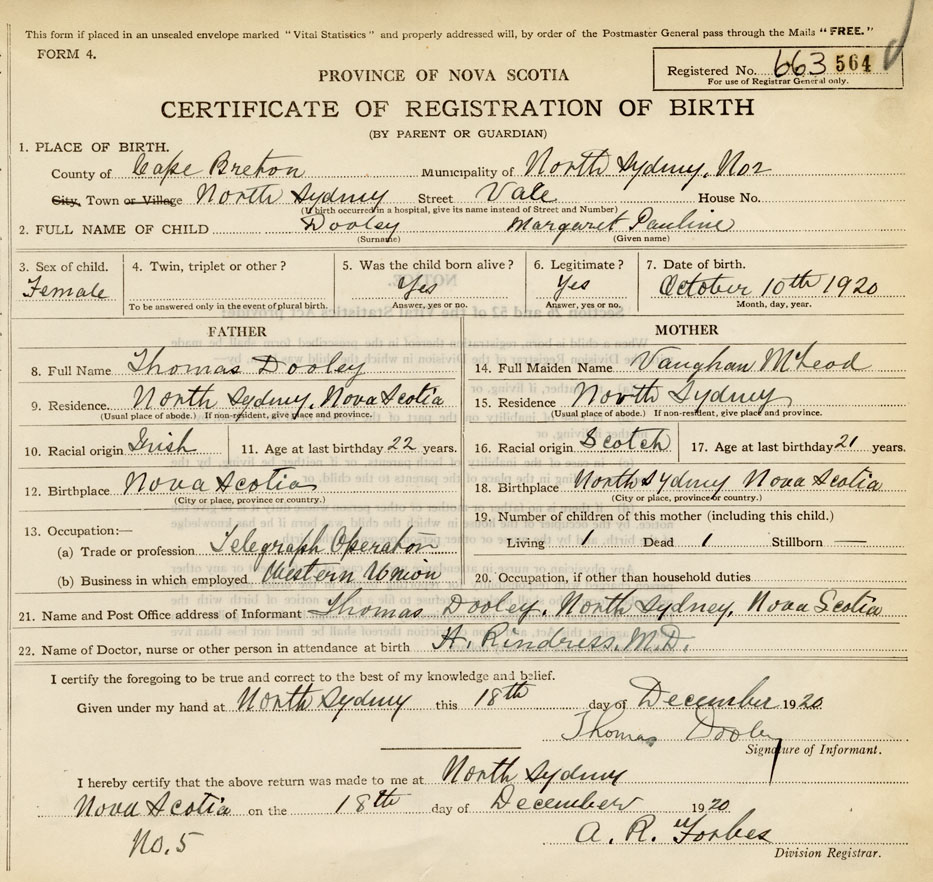 This form if placed in an unsealed envelope marked "Vital Statistics" and properly addressed will, by order of the Postmaster General pass through the Mails "FREE."
FORM 4.
Registered No. 663 564
For use of Registrar General only.
PROVINCE OF NOVA SCOTIA
CERTIFICATE OF REGISTRATION OF BIRTH
(BY PARENT OR GUARDIAN)
1. PLACE OF BIRTH.
County of Cape Breton Municipality of North Sydney, Nor
City, Town or Village North Sydney Street Vale House No.
(If birth occurred in a hospital, give its name instead of Street and Number)
2. FULL NAME OF CHILD Dooley Margaret Pauline
(Surname) (Given name)
3. Sex of child. 4. Twin, triplet or other? 5. Was the child born alive? 6. Legitimate? 7. Date of birth.
Female Yes Yes October 10th 1920
To be answered only in the event of plural birth. Answer, yes or no. Answer, yes or no. Month, day, year.
FATHER MOTHER
8. Full Name Thomas Dooley
14. Full Maiden Name Vaughan McLeod
9. Residence. North Sydney, Nova Scotia
15. Residence North Sydney
(Usual place of abode.) If non-resident, give place and province. (Usual place of abode.) If non-resident, give place and province.
10. Racial origin Irish 11. Age at last birthday 22 years.
16. Racial origin Scotch 17. Age at last birthday 21 years.
12. Birthplace Nova Scotia
(City or place, province or country.)
18. Birthplace North Sydney Nova Scotia
(City or place, province or country.)
13. Occupation:—
(a) Trade or profession Telegraph Operator
(b) Business in which employed Western Union
19. Number of children of this mother (including this child.)
Living 1 Dead 1 Stillborn —
20. Occupation, if other than household duties
21. Name and Post Office address of Informant Thomas Dooley, North Sydney, Nova Scotia
22. Name of Doctor, nurse or other person in attendance at birth H. Rindress, M.D.
I certify the foregoing to be true and correct to the best of my knowledge and belief.
Given under my hand at North Sydney this 18th day of December 1920
Thomas Dooley
Signature of Informant.
I hereby certify that the above return was made to me at North Sydney
Nova Scotia on the 18th day of December 1920
No. 5
A. R. Forbes
Division Registrar.